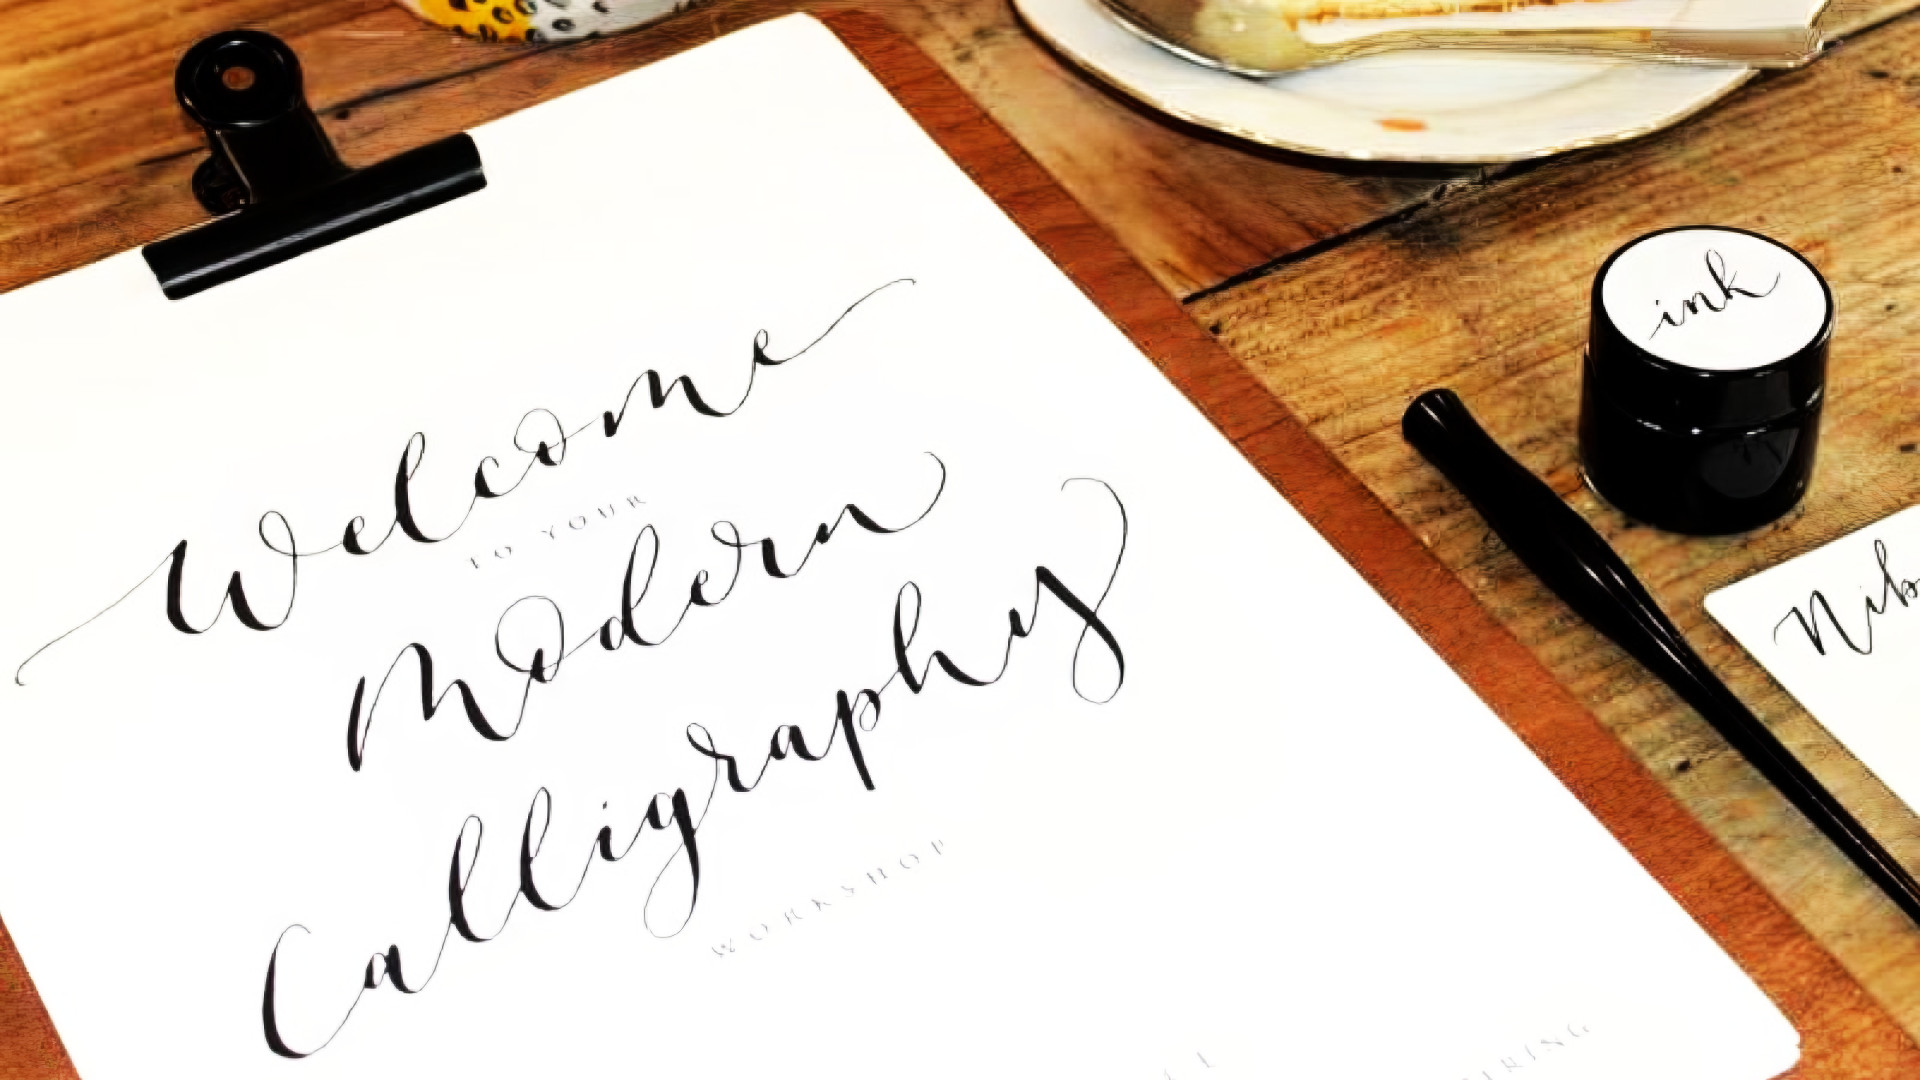 Welcome
TO YOUR
Modern
Calligraphy
WORKSHOP
ink